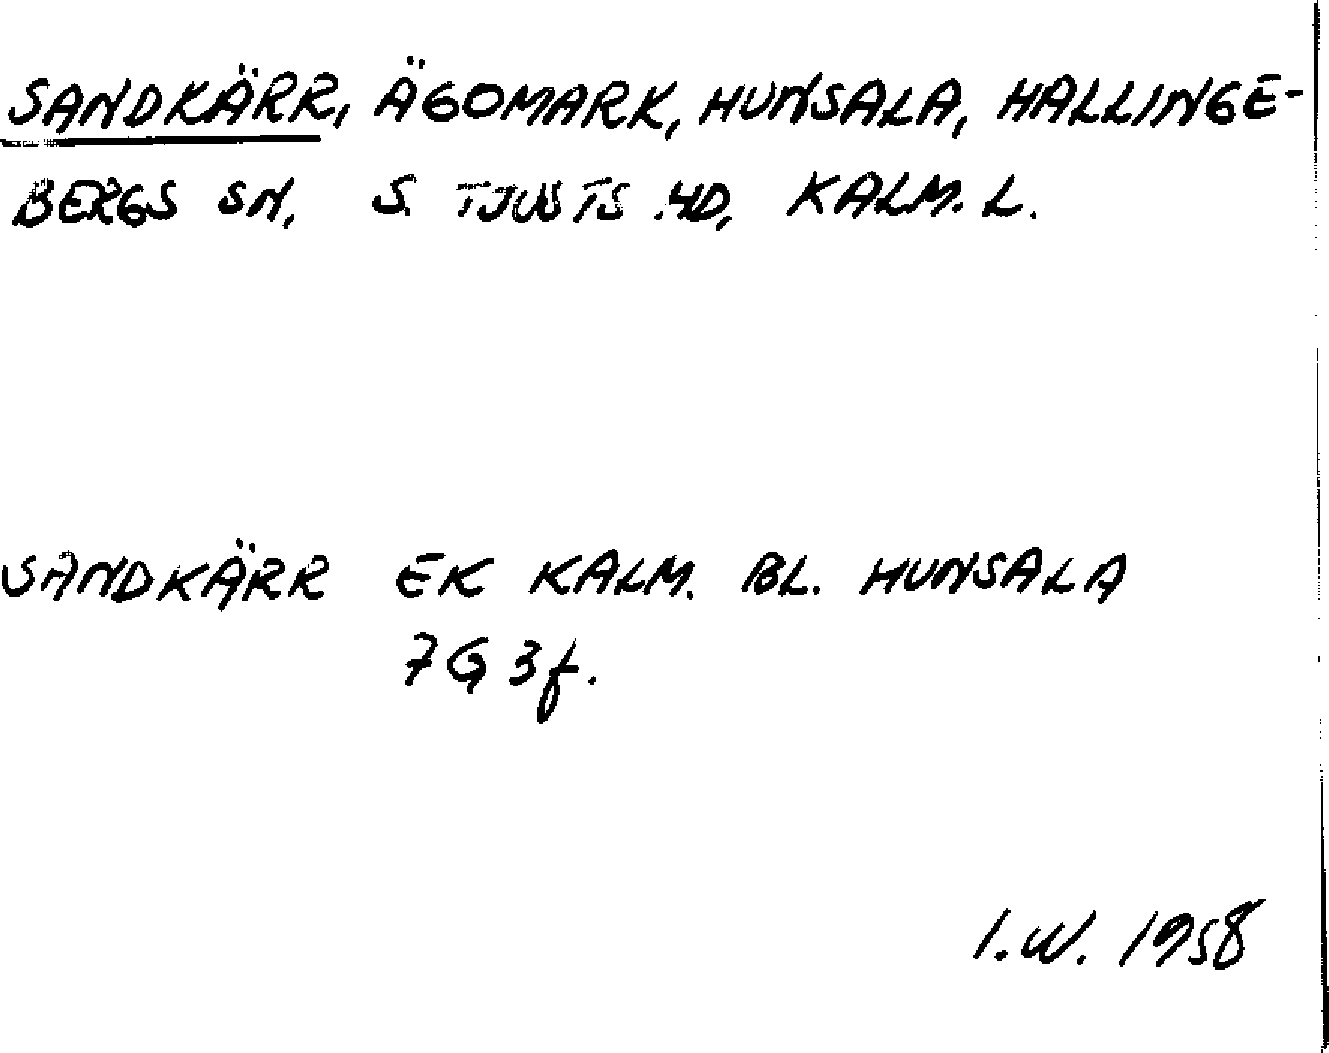 SANDKÄRR, ÄGOMARK, HUNSALA, HALLINGE-
BERGS SN, S. TJUSTS HD, KALM. L.
SANDKÄRR EK KALM. BL. HUNSALA
7G 3f.
I.W. 1958